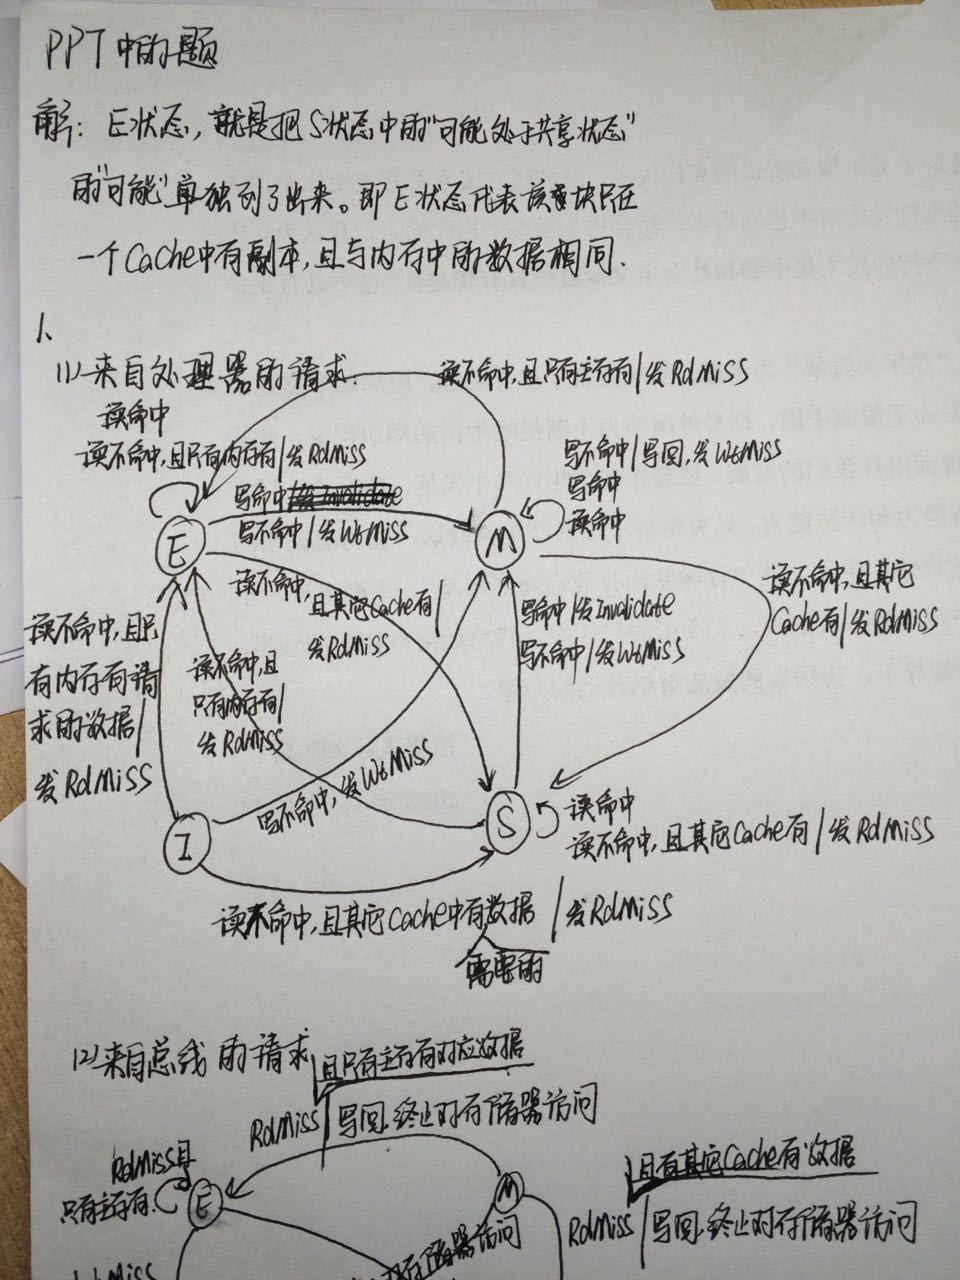 PPT中的题
解: E状态, 就是把S状态中的"可能处于共享状态"
的"可能"单独列了出来。即E状态代表该块只在
一个Cache中有副本,且与内存中的数据相同.
1、
(1) 来自处理器的请求:
读不命中,且只有主存有/发RdMiss
读命中
读不命中,且只有内存有/发RdMiss
写不命中/写回,发WtMiss
写命中
读命中
写命中
写不命中/发WtMiss
E
M
读不命中,且其它Cache有/
发RdMiss
读不命中,且其它
Cache有/发RdMiss
写命中/发Invalidate
写不命中/发WtMiss
读不命中,且只
有内存有请
求的数据/
发RdMiss
读不命中,且
只有内存有/
发RdMiss
写不命中,发WtMiss
I
S
读命中
读不命中,且其它Cache有/发RdMiss
读不命中,且其它Cache中有数据/发RdMiss
需要的
(2) 来自总线的请求
且只有主存有对应数据
RdMiss/写回,终止对存储器访问
RdMiss且
只有主存有.
E
M
且有其它Cache有数据
RdMiss/写回,终止对存储器访问
存储器访问
WtMiss